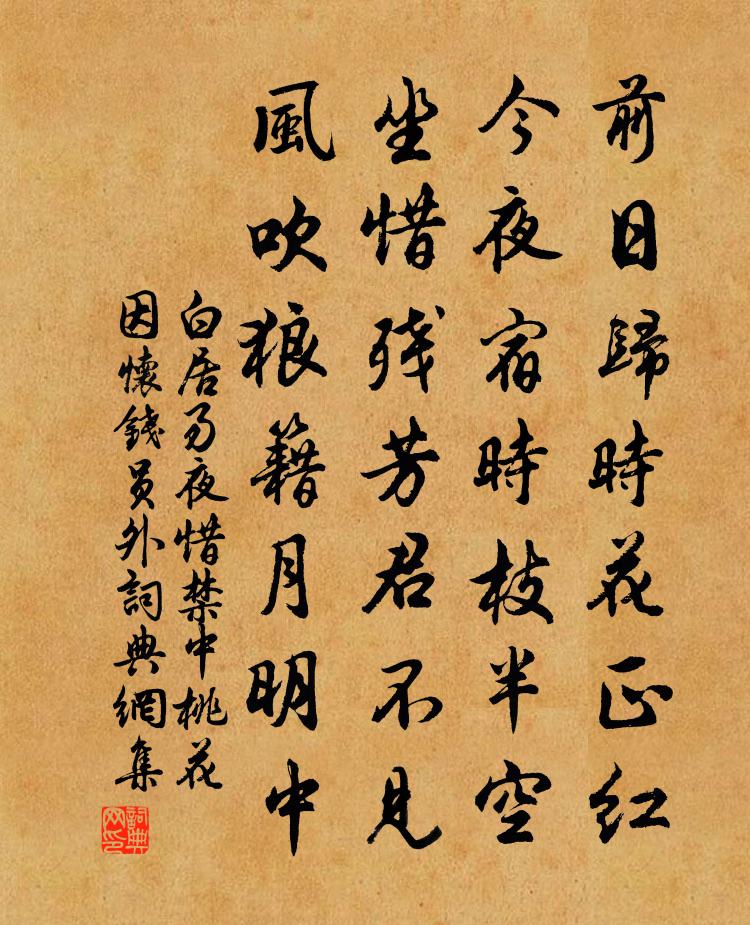 前日歸時花正红
今夜宿時枝半空
坐惜残芳君不見
風吹狼籍月明中
白居易夜惜禁中桃花
因懷錢員外詞典網集
詞典
网印